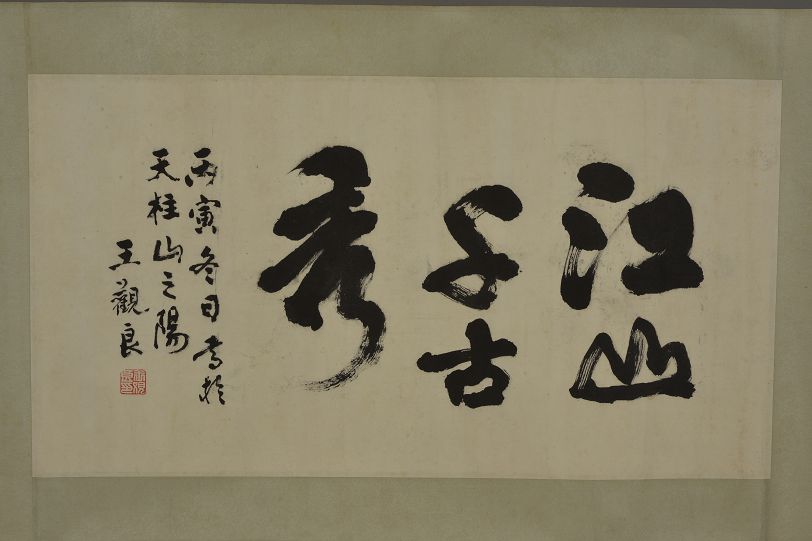 江山
千古
秀
丙寅冬日書於
天柱山之陽
王觀良